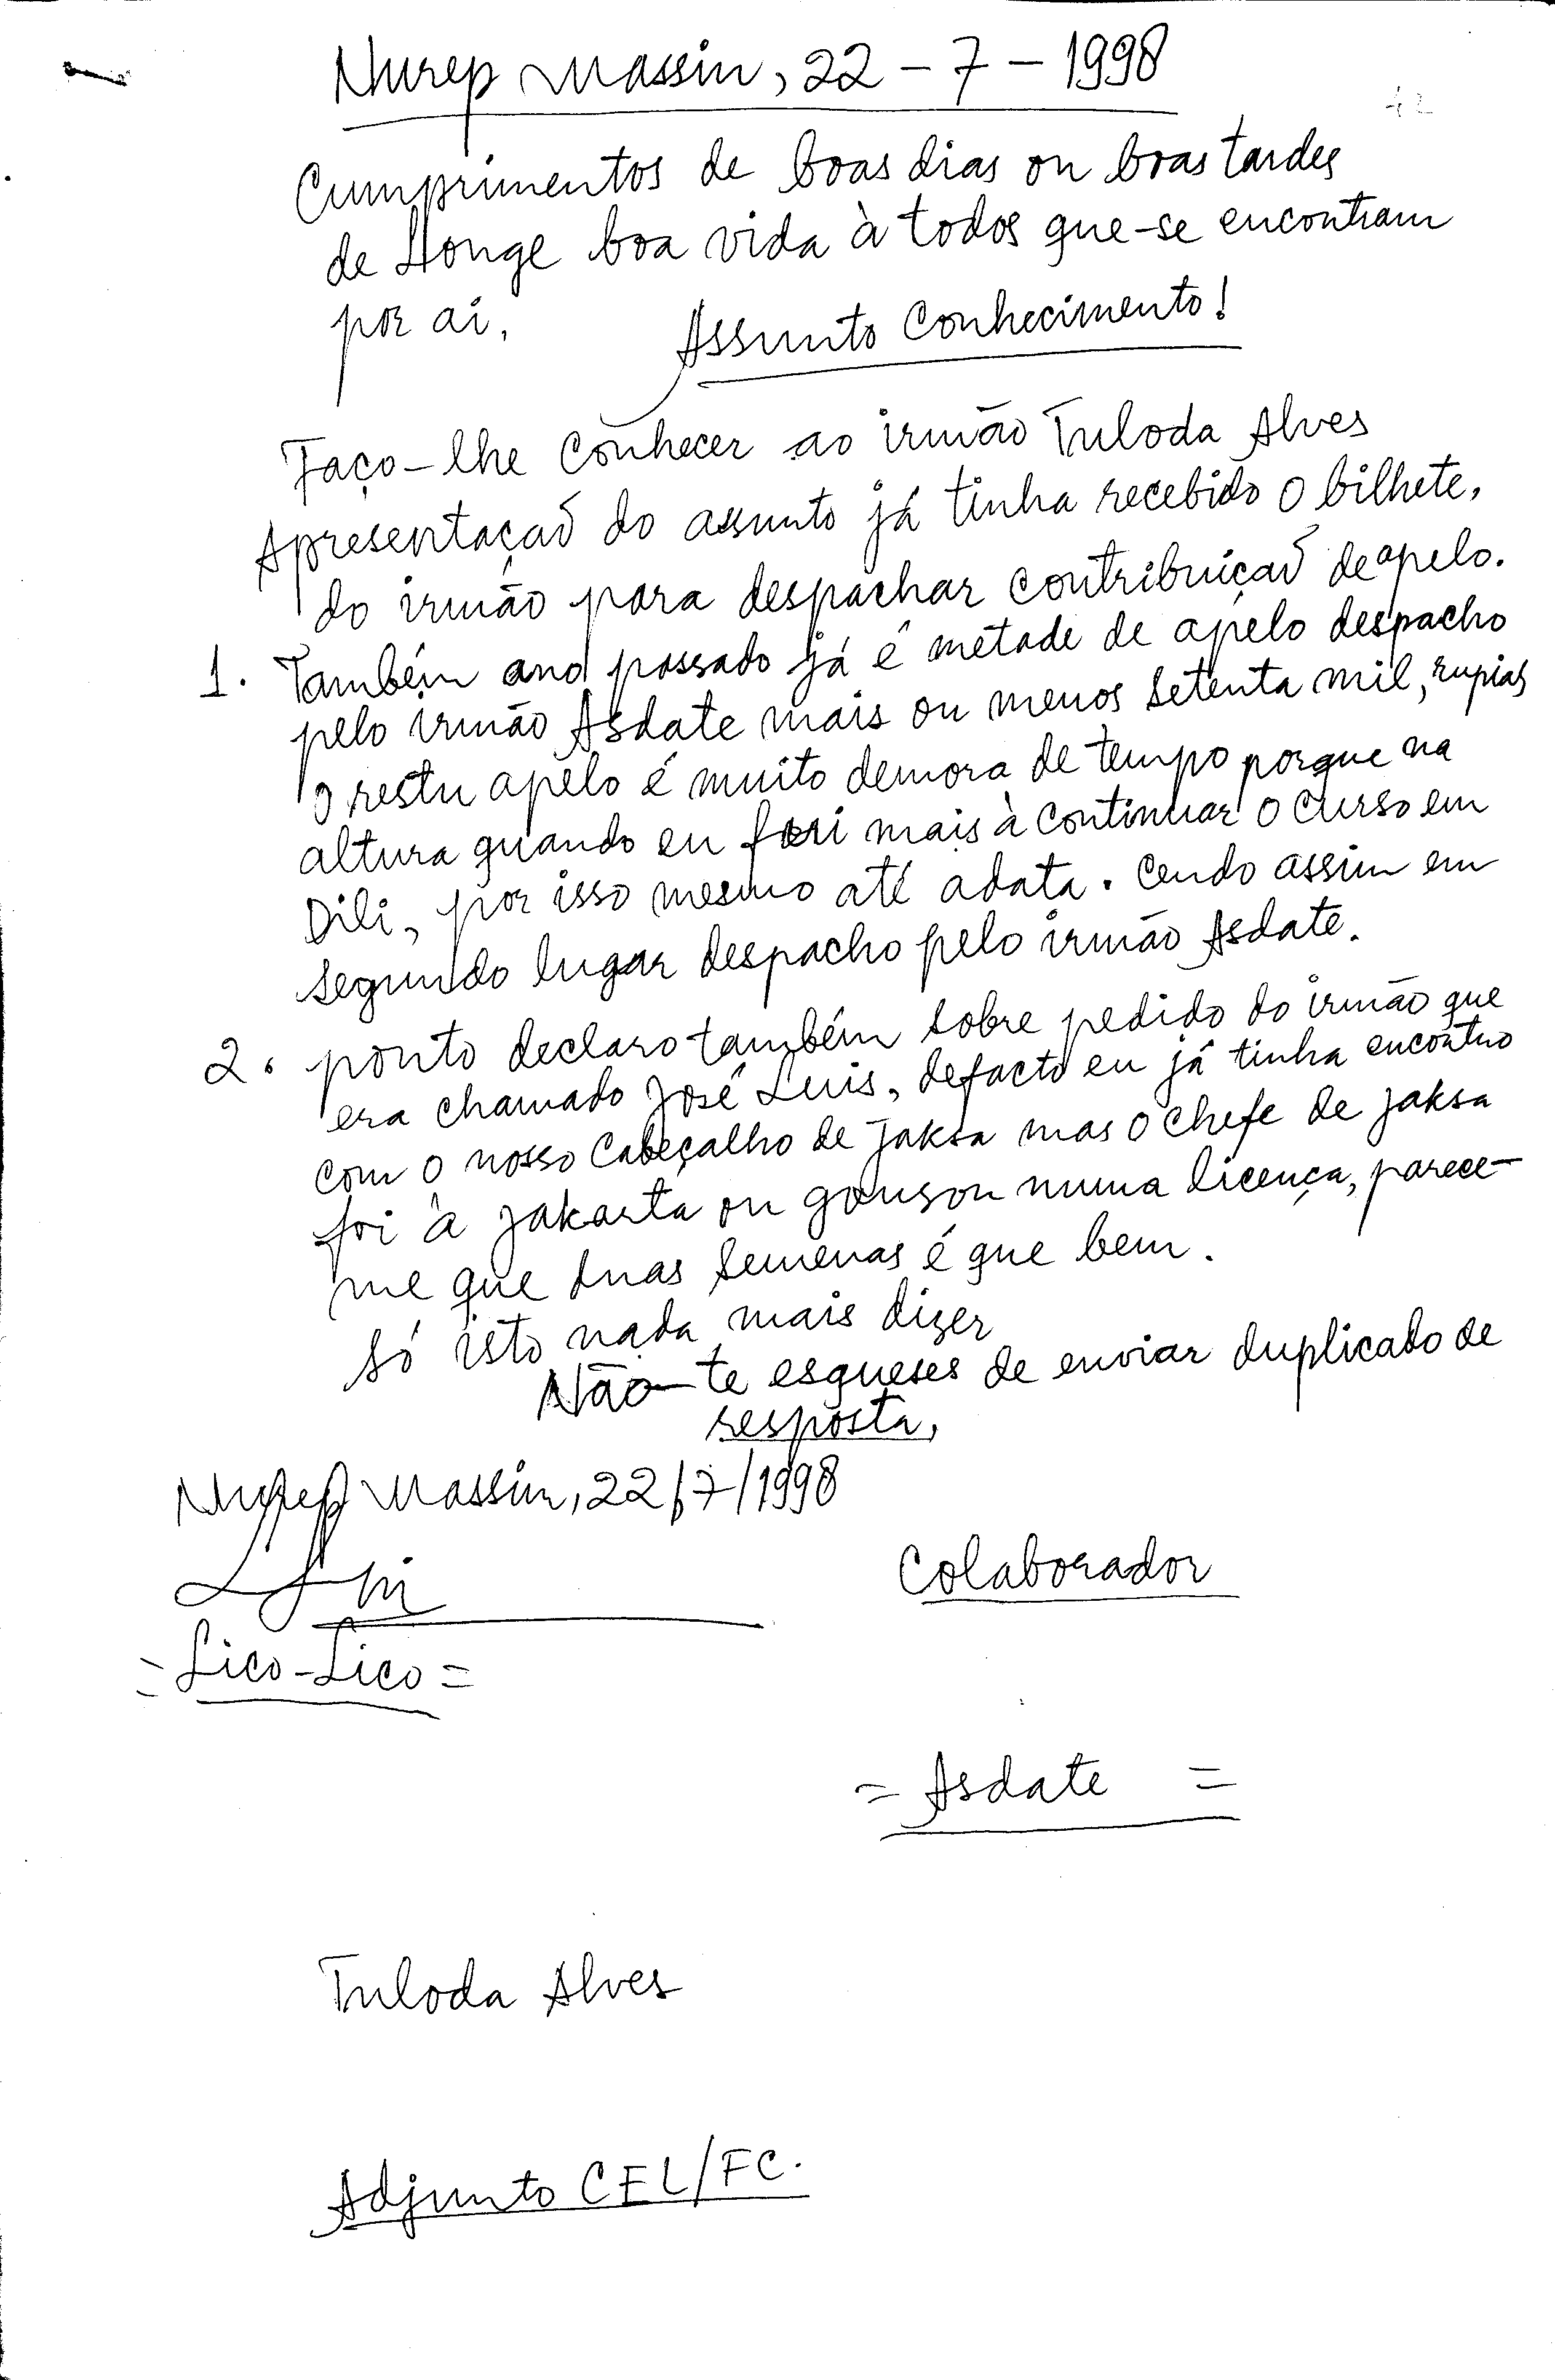 Nurep Massin, 22 - 7 - 1998
Cumprimentos de boas dias ou boas tardes
de Llonge boa vida à todos que-se encontram
por ai,
Assunto Conhecimento!
Faço-lhe conhecer ao irmão Tuloda Alves
Apresentaçaõ do assunto já tinha recebido o bilhete,
do irmão para despachar contribuiçaõ de apelo.
1. Também ano passado já é metade de apêlo despacho
pelo irmão Asdate mais ou menos setenta mil, rupias
o restu apêlo é muito demora de tempo porque na
altura quando eu fui mais à continuar o curso em
Dili, por isso mesmo até adata. Cendo assim em
segundo lugar despacho pelo irmão Asdate.
2. ponto declaro também sobre pedido do irmão que
era chamado José Luis, defacto eu já tinha encontro
com o nosso Cabeçalho de Jaksa mas o chefe de jaksa
foi à jakarta ou gousou numa licença, parece-
me que duas semenas é que bem.
Só isto nada mais dizer
Não-te esqueses de enviar duplicado de
resposta,
Nurep Massin, 22/7/1998
Colaborador
= Lico-Lico =
= Asdate =
Tuloda Alves
Adjunto CEL/FC.